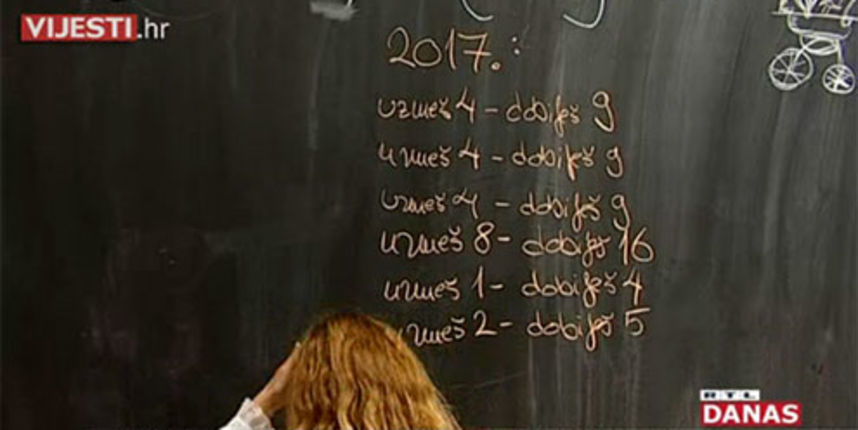 VIJESTI.hr
2017.:
uzmeš 4 - dobiješ 9
uzmeš 4 - dobiješ 9
uzmeš 4 - dobiješ 9
uzmeš 8 - dobiješ 16
uzmeš 1 - dobiješ 4
uzmeš 2 - dobiješ 5
RTL
DANAS